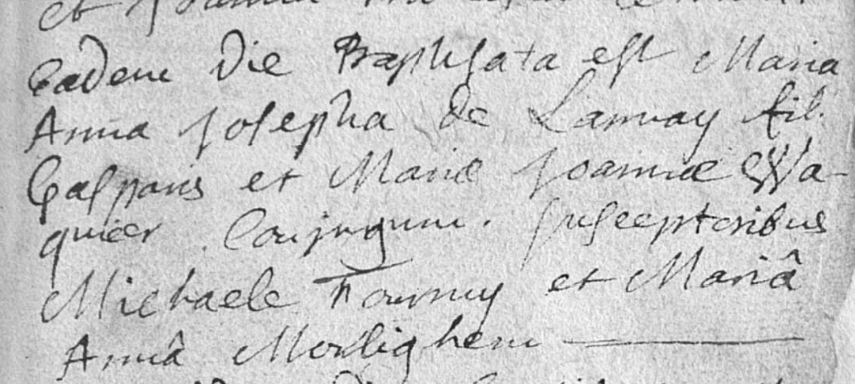 et
eadem die Baptisata est Maria
Anna Josepha de Lannay fil.
Gasparis et Mariæ Joannæ Wa-
quier Conjugum. Susceptoribus
Michaele Fournuy et Mariâ
Annâ Morlighem